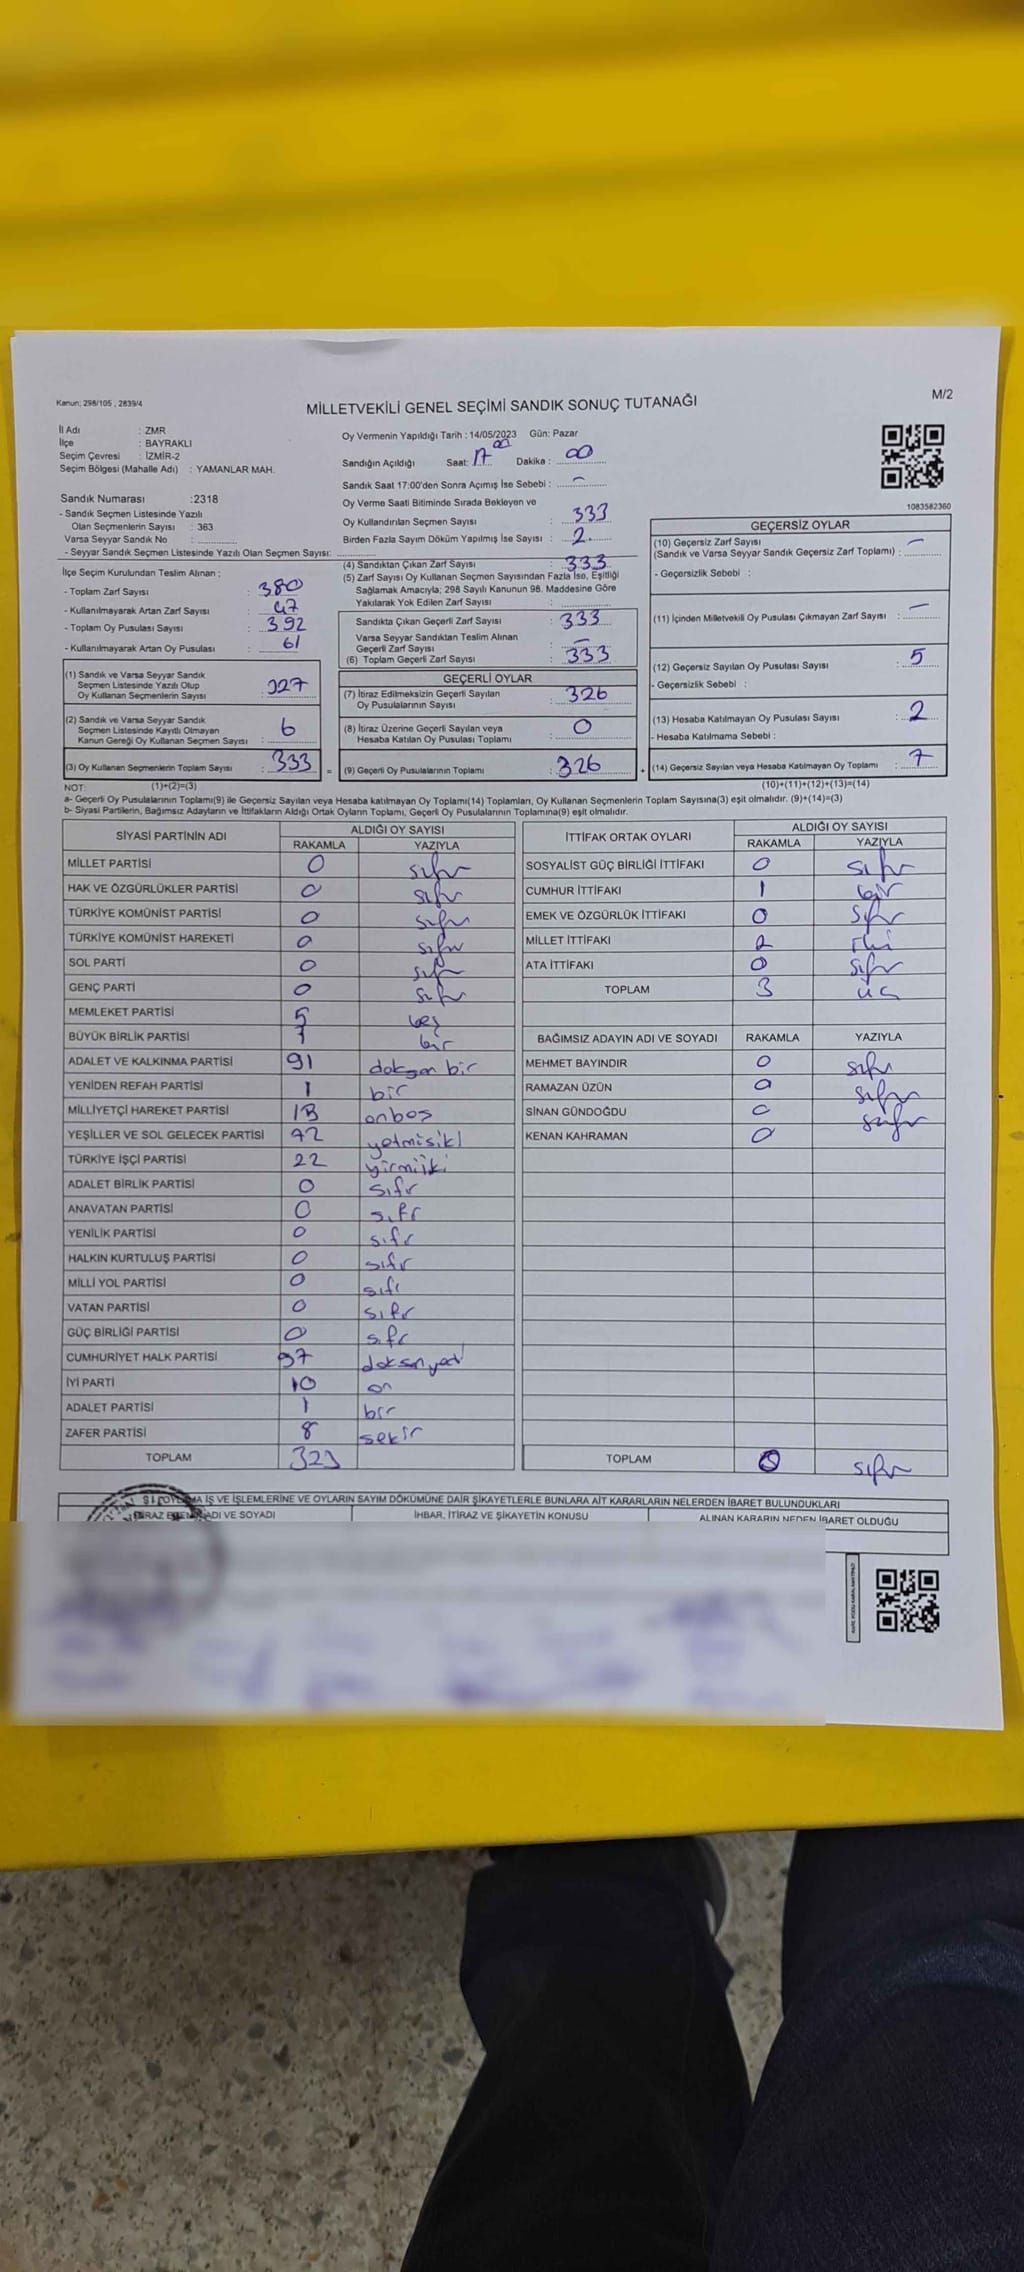 Kanun: 298/105 , 2839/4
M/2
MİLLETVEKİLİ GENEL SEÇİMİ SANDIK SONUÇ TUTANAĞI
İl Adı : ZMR
İlçe : BAYRAKLI
Seçim Çevresi : İZMİR-2
Seçim Bölgesi (Mahalle Adı) : YAMANLAR MAH.
Sandık Numarası :2318
- Sandık Seçmen Listesinde Yazılı
Olan Seçmenlerin Sayısı : 363
Varsa Seyyar Sandık No :
- Seyyar Sandık Seçmen Listesinde Yazılı Olan Seçmen Sayısı:
Oy Vermenin Yapıldığı Tarih : 14/05/2023 Gün: Pazar
Sandığın Açıldığı Saat: 17 00 Dakika : 00
Sandık Saat 17:00'den Sonra Açımış İse Sebebi : -
Oy Verme Saati Bitiminde Sırada Bekleyen ve
Oy Kullandırılan Seçmen Sayısı : 333
Birden Fazla Sayım Döküm Yapılmış İse Sayısı : 2
1083582360
İlçe Seçim Kurulundan Teslim Alınan ;
- Toplam Zarf Sayısı : 380
- Kullanılmayarak Artan Zarf Sayısı : 47
- Toplam Oy Pusulası Sayısı : 392
- Kullanılmayarak Artan Oy Pusulası : 61
(1) Sandık ve Varsa Seyyar Sandık
Seçmen Listesinde Yazılı Olup
Oy Kullanan Seçmenlerin Sayısı : 327
(2) Sandık ve Varsa Seyyar Sandık
Seçmen Listesinde Kayıtlı Olmayan
Kanun Gereği Oy Kullanan Seçmen Sayısı : 6
(3) Oy Kullanan Seçmenlerin Toplam Sayısı : 333
(1)+(2)=(3)
(4) Sandıktan Çıkan Zarf Sayısı : 333
(5) Zarf Sayısı Oy Kullanan Seçmen Sayısından Fazla İse, Eşitliği
Sağlamak Amacıyla; 298 Sayılı Kanunun 98. Maddesine Göre
Yakılarak Yok Edilen Zarf Sayısı :
Sandıkta Çıkan Geçerli Zarf Sayısı : 333
Varsa Seyyar Sandıktan Teslim Alınan
Geçerli Zarf Sayısı : -
(6) Toplam Geçerli Zarf Sayısı : 333
GEÇERLİ OYLAR
(7) İtiraz Edilmeksizin Geçerli Sayılan
Oy Pusulalarının Sayısı : 326
(8) İtiraz Üzerine Geçerli Sayılan veya
Hesaba Katılan Oy Pusulası Toplamı : 0
= (9) Geçerli Oy Pusulalarının Toplamı : 326 +
GEÇERSİZ OYLAR
(10) Geçersiz Zarf Sayısı
(Sandık ve Varsa Seyyar Sandık Geçersiz Zarf Toplamı) : -
- Geçersizlik Sebebi :
(11) İçinden Milletvekili Oy Pusulası Çıkmayan Zarf Sayısı : -
(12) Geçersiz Sayılan Oy Pusulası Sayısı : 5
- Geçersizlik Sebebi :
(13) Hesaba Katılmayan Oy Pusulası Sayısı : 2
- Hesaba Katılmama Sebebi :
(14) Geçersiz Sayılan veya Hesaba Katılmayan Oy Toplamı : 7
(10)+(11)+(12)+(13)=(14)
NOT:
a- Geçerli Oy Pusulalarının Toplamı(9) ile Geçersiz Sayılan veya Hesaba katılmayan Oy Toplamı(14) Toplamları, Oy Kullanan Seçmenlerin Toplam Sayısına(3) eşit olmalıdır. (9)+(14)=(3)
b- Siyasi Partilerin, Bağımsız Adayların ve İttifakların Aldığı Ortak Oyların Toplamı, Geçerli Oy Pusulalarının Toplamına(9) eşit olmalıdır.
SİYASİ PARTİNİN ADI ALDIĞI OY SAYISI
RAKAMLA YAZIYLA
MİLLET PARTİSİ 0 sıfır
HAK VE ÖZGÜRLÜKLER PARTİSİ 0 sıfır
TÜRKİYE KOMÜNİST PARTİSİ 0 sıfır
TÜRKİYE KOMÜNİST HAREKETİ 0 sıfır
SOL PARTİ 0 sıfır
GENÇ PARTİ 0 sıfır
MEMLEKET PARTİSİ 5 beş
BÜYÜK BİRLİK PARTİSİ 1 bir
ADALET VE KALKINMA PARTİSİ 91 doksan bir
YENİDEN REFAH PARTİSİ 1 bir
MİLLİYETÇİ HAREKET PARTİSİ onbeş
YEŞİLLER VE SOL GELECEK PARTİSİ 72 yetmişiki
TÜRKİYE İŞÇİ PARTİSİ 22 yirmiiki
ADALET BİRLİK PARTİSİ 0 sıfır
ANAVATAN PARTİSİ 0 sıfır
YENİLİK PARTİSİ 0 sıfır
HALKIN KURTULUŞ PARTİSİ 0 sıfır
MİLLİ YOL PARTİSİ 0 sıfır
VATAN PARTİSİ 0 sıfır
GÜÇ BİRLİĞİ PARTİSİ 0 sıfır
CUMHURİYET HALK PARTİSİ 97 doksanyedi
İYİ PARTİ 10 on
ADALET PARTİSİ 1 bir
ZAFER PARTİSİ 8 sekiz
TOPLAM 323
İTTİFAK ORTAK OYLARI ALDIĞI OY SAYISI
RAKAMLA YAZIYLA
SOSYALİST GÜÇ BİRLİĞİ İTTİFAKI 0 sıfır
CUMHUR İTTİFAKI 1 bir
EMEK VE ÖZGÜRLÜK İTTİFAKI 0 sıfır
MİLLET İTTİFAKI 2 iki
ATA İTTİFAKI 0 sıfır
TOPLAM 3 üç
BAĞIMSIZ ADAYIN ADI VE SOYADI RAKAMLA YAZIYLA
MEHMET BAYINDIR 0 sıfır
RAMAZAN ÜZÜN 0 sıfır
SİNAN GÜNDOĞDU 0 sıfır
KENAN KAHRAMAN 0
TOPLAM 0 sıfır
OYLAMA İŞ VE İŞLEMLERİNE VE OYLARIN SAYIM DÖKÜMÜNE DAİR ŞİKAYETLERLE BUNLARA AİT KARARLARIN NELERDEN İBARET BULUNDUKLARI
ADI VE SOYADI İHBAR, İTİRAZ VE ŞİKAYETİN KONUSU ALINAN KARARIN NEDEN İBARET OLDUĞU